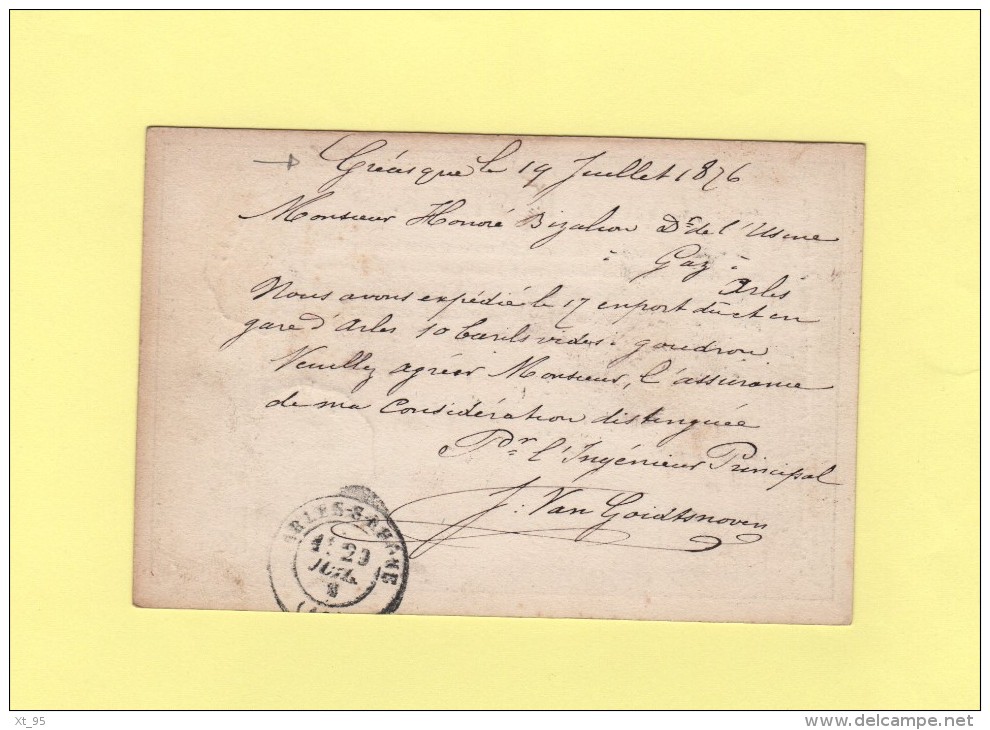 Gréasque le 19 Juillet 1876
Monsieur Honoré Bizalion Dr de l'Usine
à Gaz à
Arles
Nous avons expédié le 17 en port dû et en
gare d'Arles 10 barils vides: goudron.
Veuillez agréer Monsieur, l'assurance
de ma Considération distinguée
Pr l'Ingénieur Principal
J. Van Goidtsnoven
ARLES-S-RHONE
20
JUIL.
Xt_95
www.delcampe.net